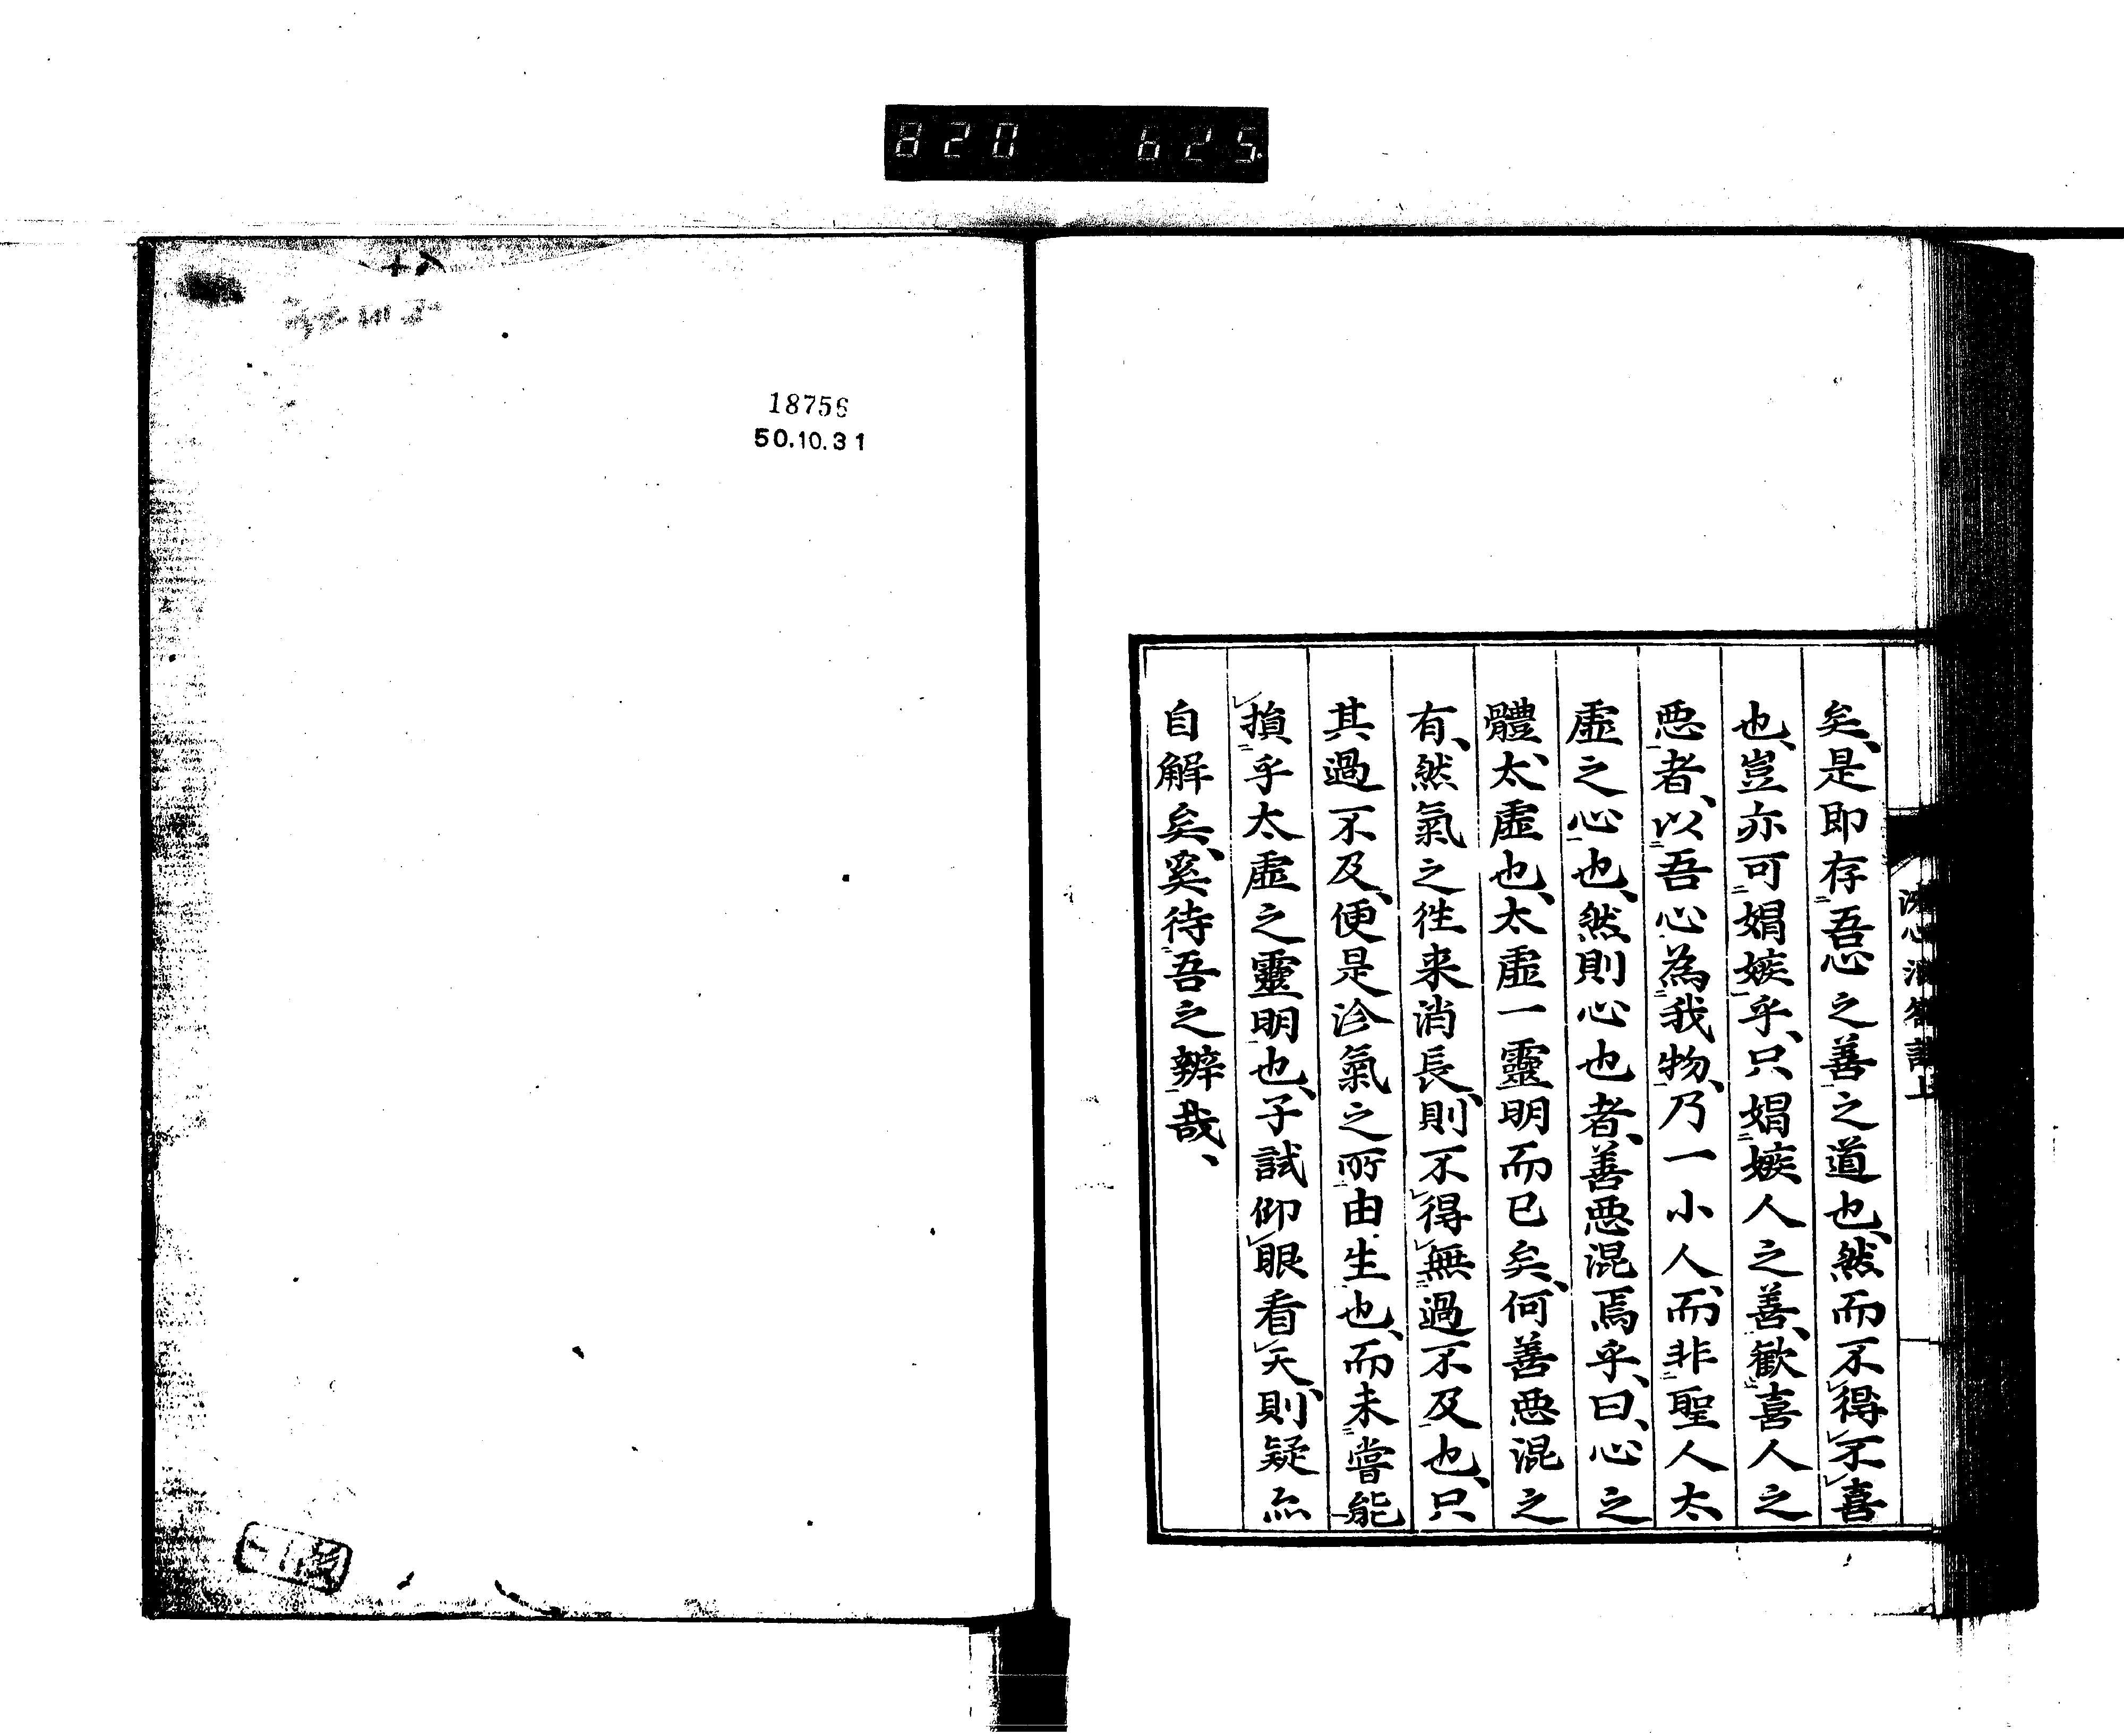 820 625
矣、是即存吾心之善之道也、然而不得不喜
也、豈亦可娼嫉乎、只娼嫉人之善、歡喜人之
惡者、以吾心為我物、乃一小人、而非聖人太
虛之心也、然則心也者、善惡混焉乎、曰、心之
體、太虛也、太虛一靈明而已矣、何善惡混之
有、然氣之徃来消長、則不得無過不及也、只
其過不及、便是沴氣之所由生也、而未嘗能
損乎太虛之靈明也、子試仰眼看天、則疑亦
自解矣、奚待吾之辨哉、
18756
50.10.31